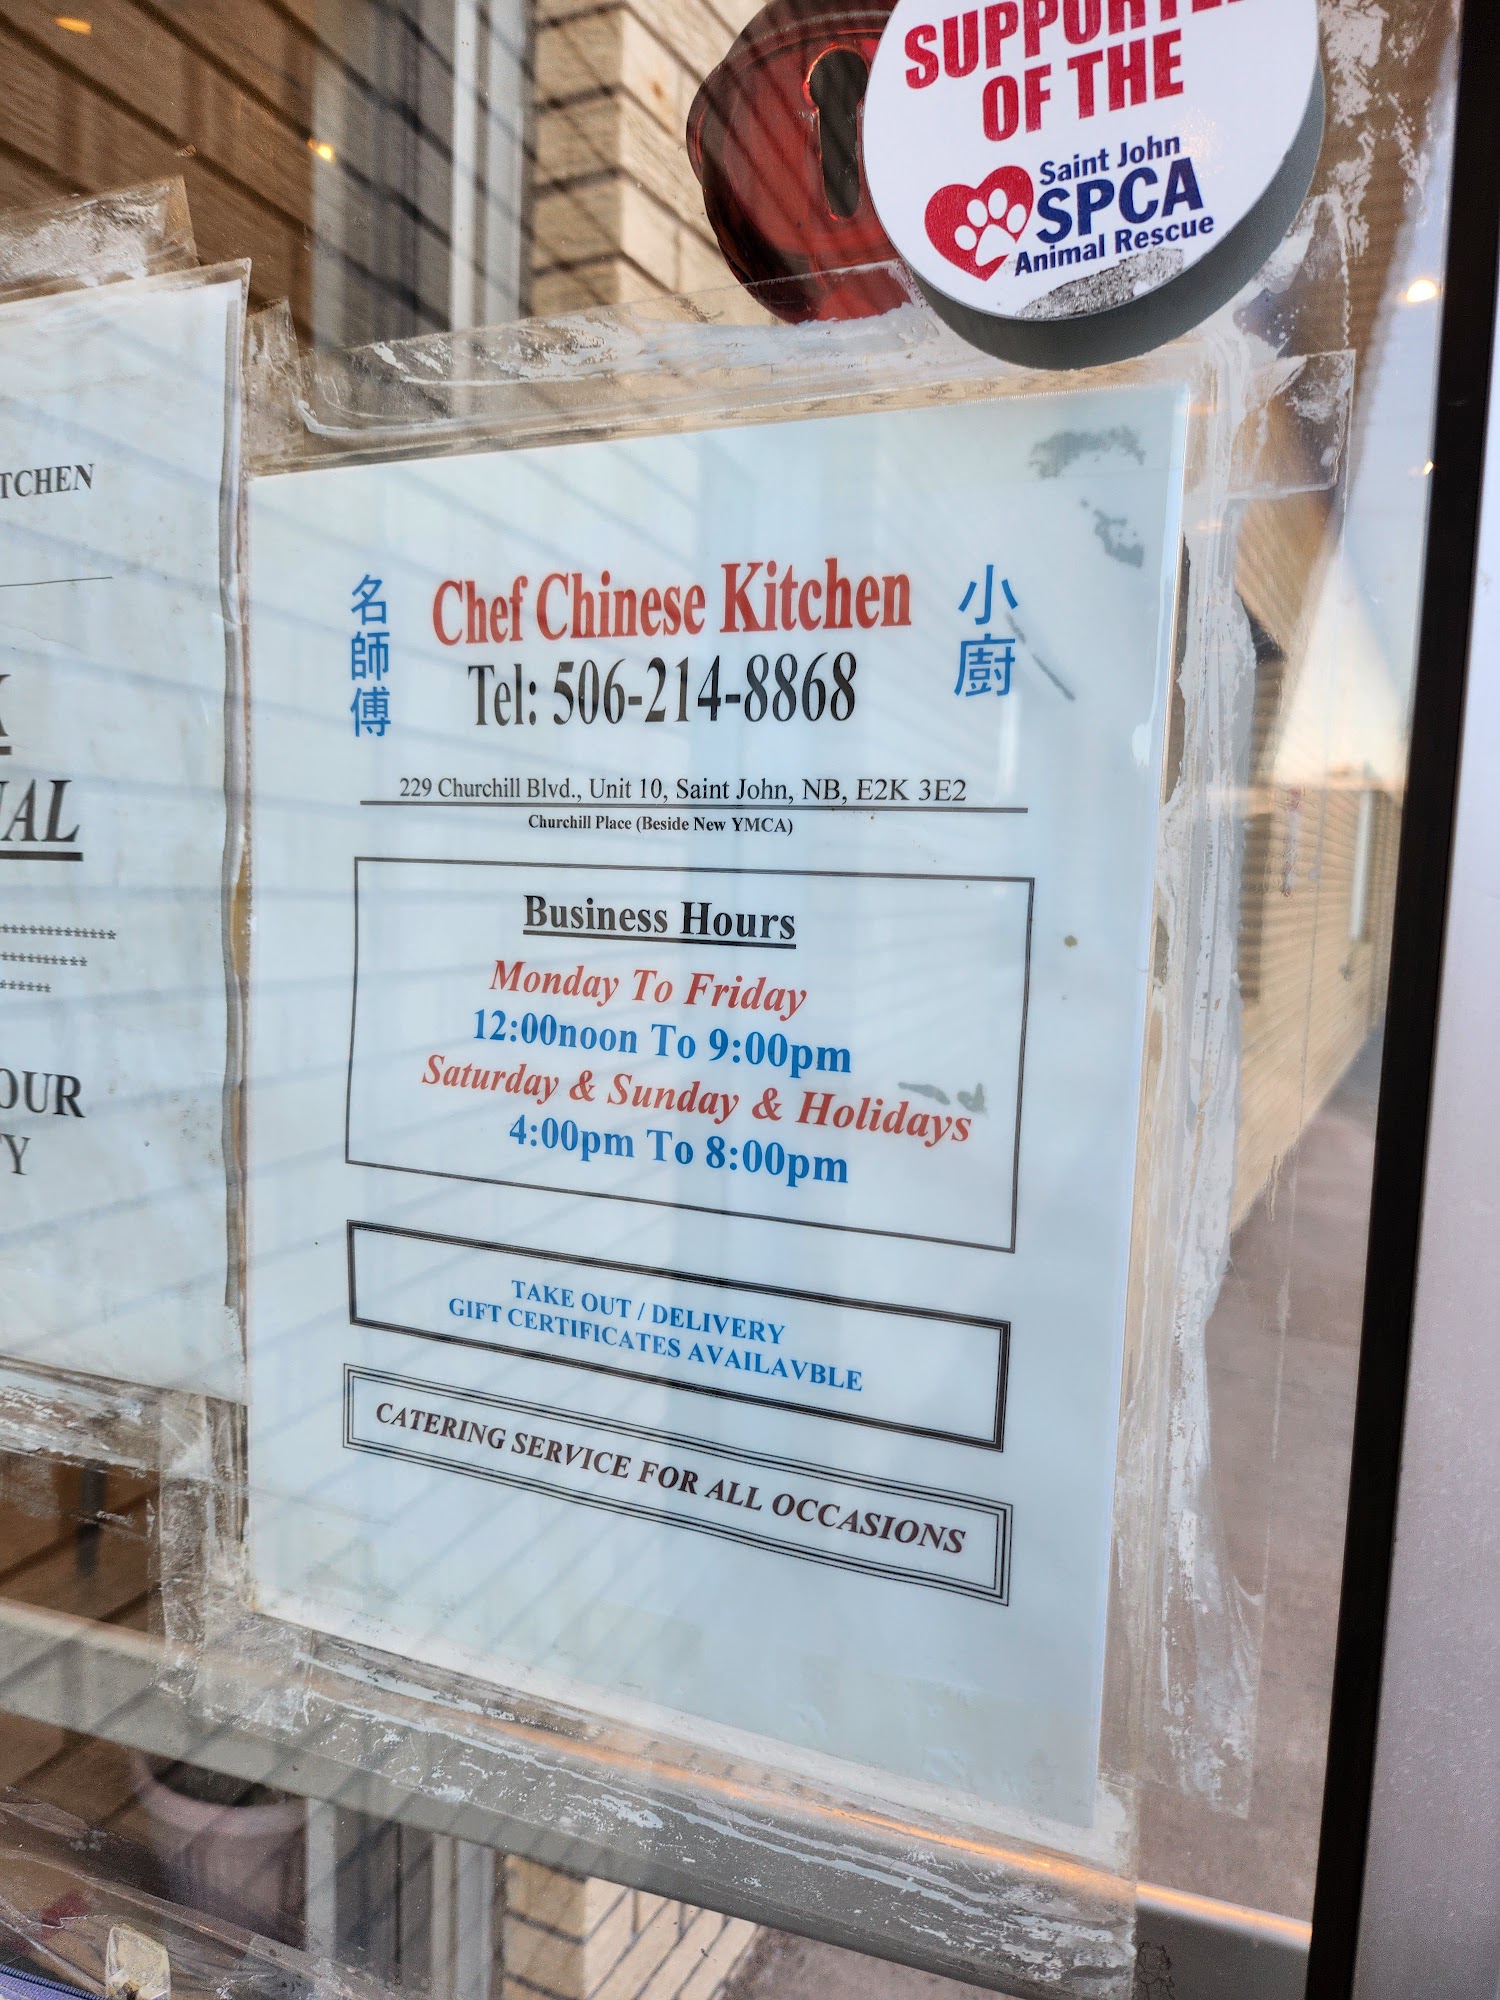 OF THE
Saint John
SPCA
Animal Rescue
TCHEN
AL
OUR
Y
名師傅
Chef Chinese Kitchen
小廚
Tel: 506-214-8868
229 Churchill Blvd., Unit 10, Saint John, NB, E2K 3E2
Churchill Place (Beside New YMCA)
Business Hours
Monday To Friday
12:00noon To 9:00pm
Saturday & Sunday & Holidays
4:00pm To 8:00pm
TAKE OUT / DELIVERY
GIFT CERTIFICATES AVAILAVBLE
CATERING SERVICE FOR ALL OCCASIONS